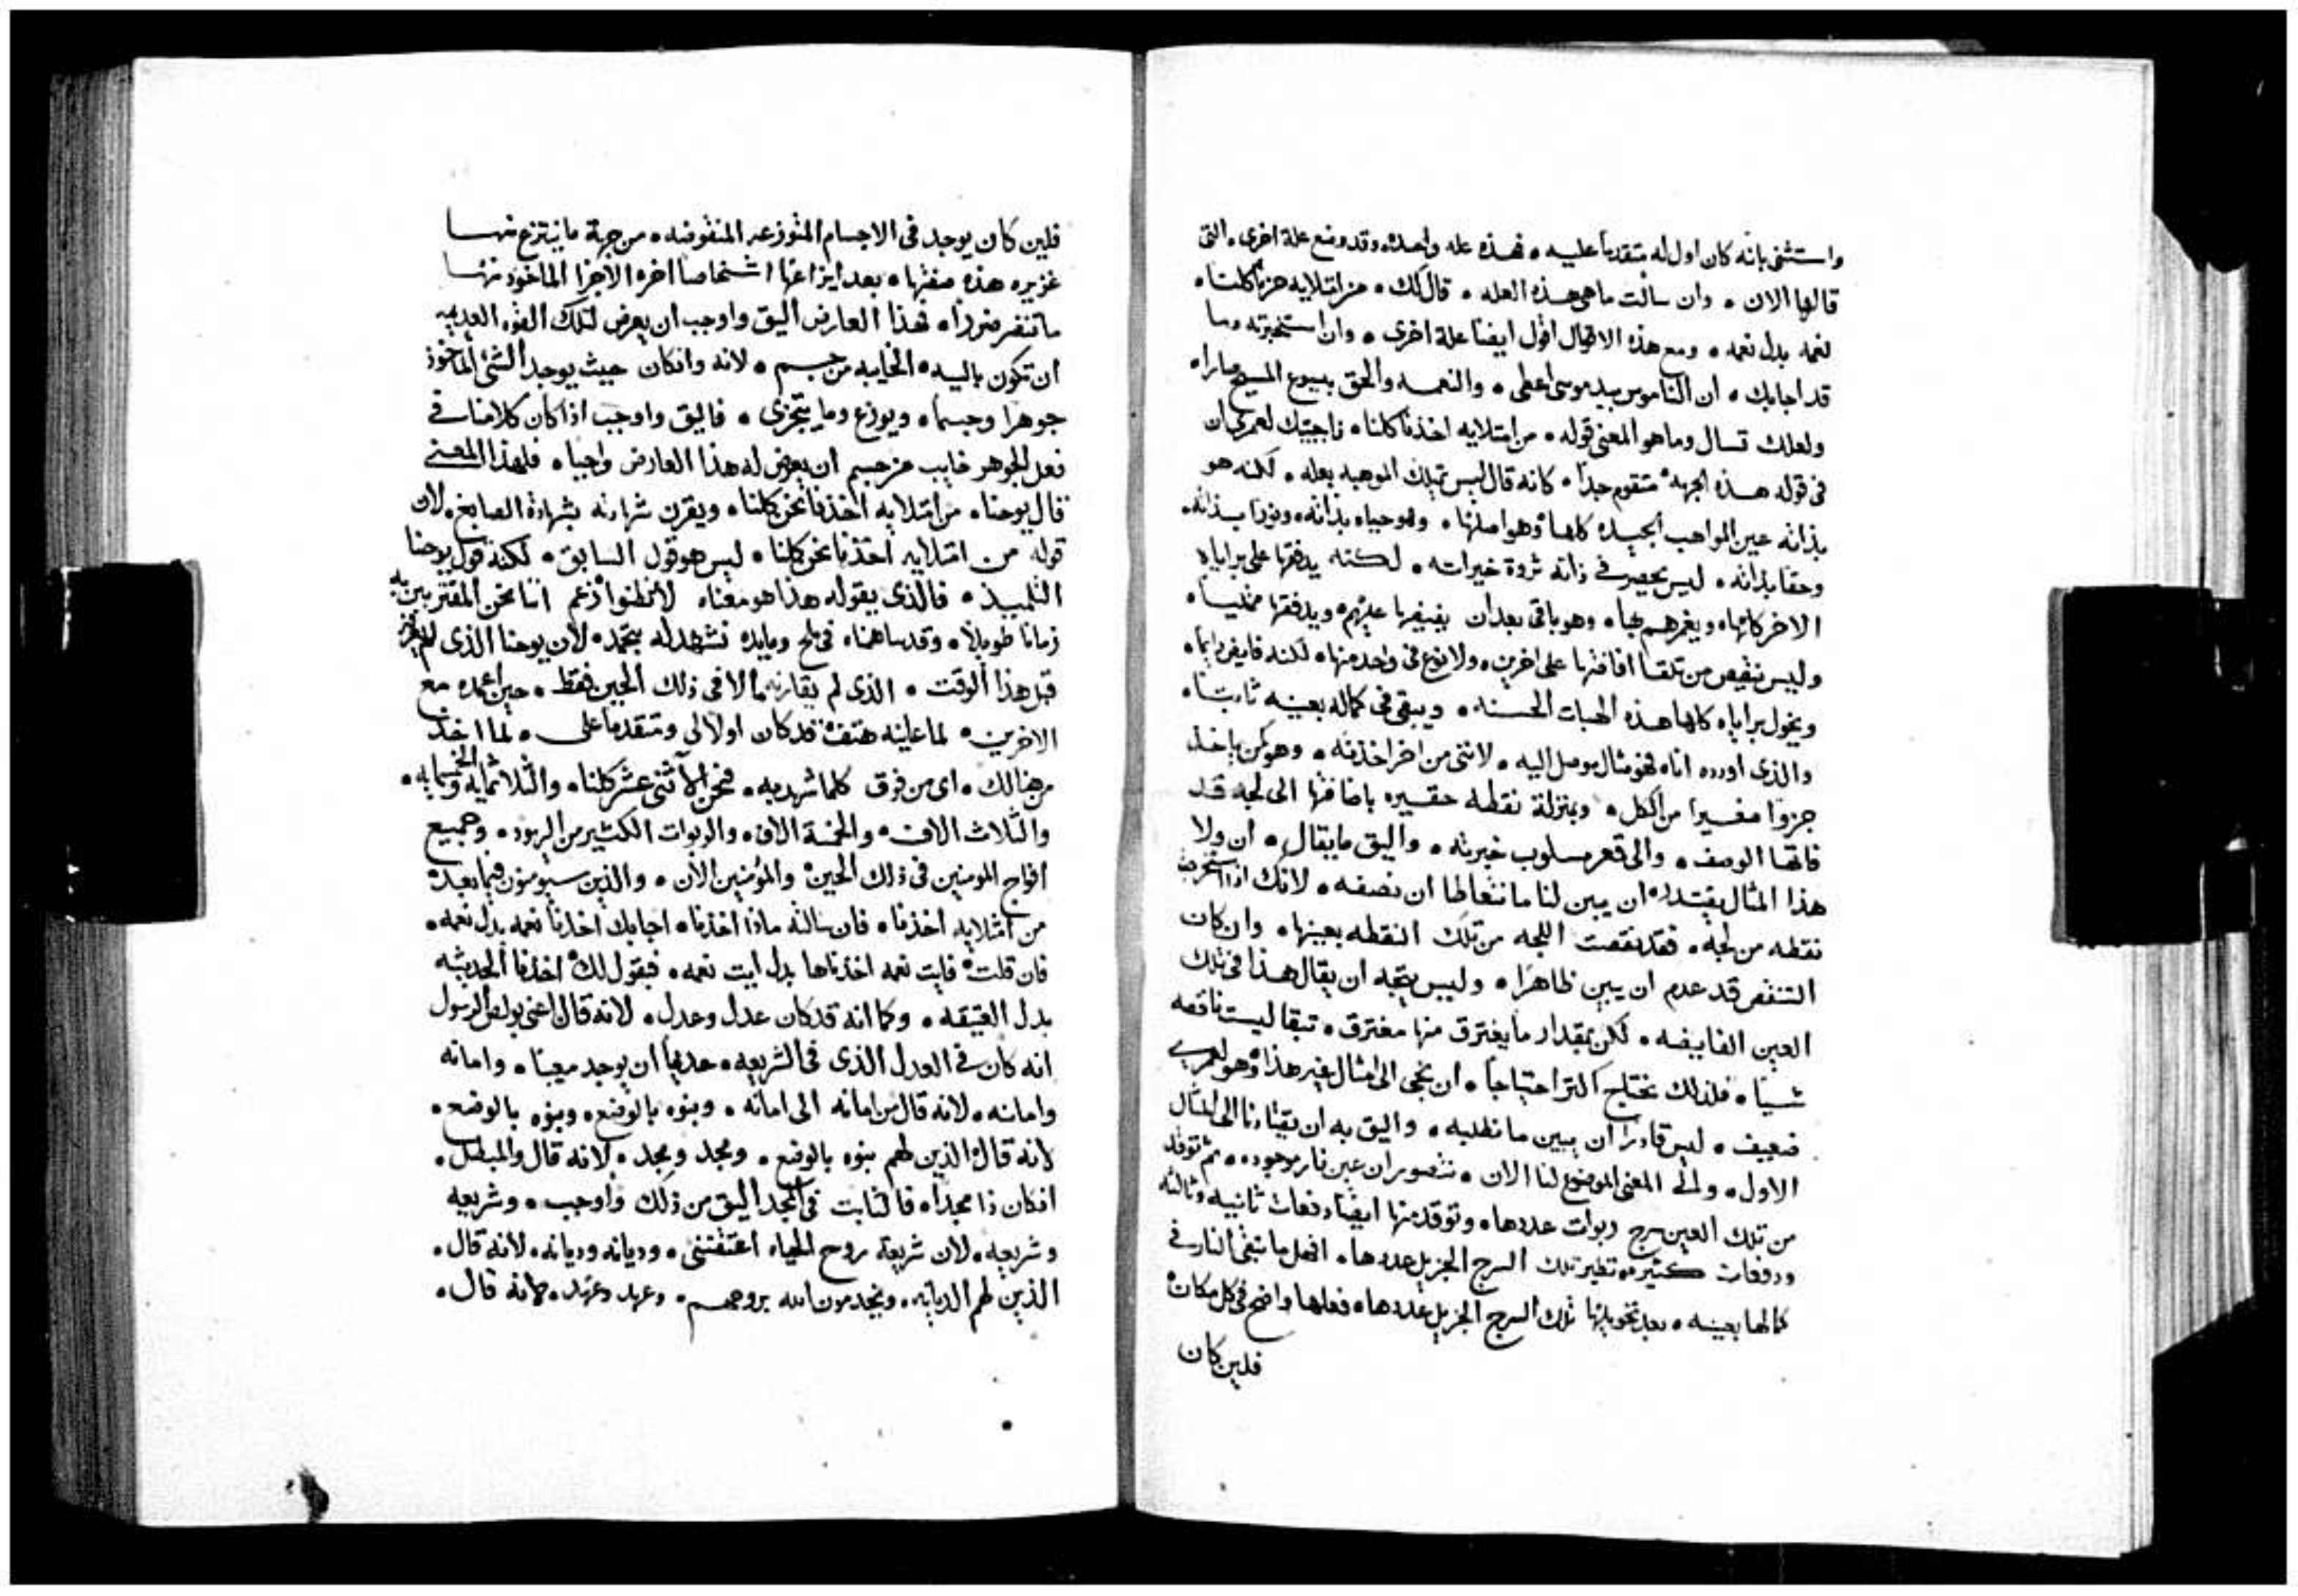 واستثنى بانه كان اول له متقدما عليه ٥ فهذه عله واحده وقد وضع علة اخرى ٥ التى
قالها الان ٥ وان سالت ما هى هذه العله ٥ قال لك ٥ من امتلايه نحن كلنا ٥
نعمه بدل نعمه ٥ ومع هذه الاقوال اقول ايضا علة اخرى ٥ وان استخبرته وما
قد اجابك ٥ ان الناموس بيد موسى اعطى ٥ والنعمه والحق بيسوع المسيح صارا ٥
ولعلك تسال وما هو المعنى قوله ٥ من امتلايه اخذنا كلنا ٥ فاجيبك لعمرى ان
فى قوله هذه الجهه متقوم جدا ٥ كانه قال ليس تملك الموهبه بعله ٥ لكنه هو
بذاته عين المواهب الجيده كلها ٥ وهو اصلها ٥ وهو حياه بذاته ٥ ونورا بذاته ٥
وحقا بذاته ٥ ليس يحصر فى ذاته ثروة خيراته ٥ لكنه يدفقها على براياه
الاخر كلها ٥ ويغمرهم بها ٥ وهو باقى بعد ان يفيضها عليهم ٥ ويدفقها ممتليا ٥
وليس ينقص من تلقا افاضتها على اخرين ٥ ولا نوع فى واحد منها ٥ لكنه فايض دايما ٥
ويخول براياه كلها هذه الهبات الحسنه ٥ ويبقى فى كماله بعينه ثابتا ٥
والذى اورده اناه فهو مثال موصل اليه ٥ لاننى من اخر اخذته ٥ وهو كمن ياخذ
جزوا صغيرا من الكل ٥ وبمنزلة نقطه حقيره باضافتها الى لجه قد
فاتها الوصف ٥ والى قعر مسلوب خبرته ٥ واليق ما يقال ٥ ان ولا
هذا المثال يقتدر ان يبين لنا ما نتعاطا ان نصفه ٥ لانك اذا استخرجت
نقطه من لجه ٥ فقد نقصت اللجه من تلك النقطه بعينها ٥ وان كان
التنقص قد عدم ان يبين ظاهرا ٥ وليس يتجه ان يقال هذا فى تلك
العين الفايضه ٥ لكن بمقدار ما يغترق منها مغترق ٥ تبقا ليست ناقصه
شيا ٥ فلذلك نحتاج اكثر احتياجا ٥ ان نجى الى مثال غير هذا ٥ وهو لعمرى
ضعيف ٥ ليس قادرا ان يبين ما نطلبه ٥ واليق به ان يقتادنا الى المثال
الاول ٥ والى المعنى الموضوع لنا الان ٥ نتصور ان عين نار موجوده ٥ ثم توقد
من تلك العين سرج ربوات عددها ٥ وتوقد منها ايضا دفعات ثانيه وثالثه
ودفعات كثيره نظير تلك السرج الجزيل عددها ٥ افهل ما تبقى النار فى
كمالها بعينه ٥ بعد تخويلها تلك السرج الجزيل عددها ٥ فعلها واضح فى كل مكان
فلين كان
فلين كان يوجد فى الاجسام المتوزعه المنقوضه ٥ من جهة ما ينتزع منها
غزيره هذه صفتها ٥ بعد ايزاعها اشخاصا اخر ٥ الاجزا الماخوذ منها
ما تنضر ضررا ٥ فهذا العارض اليق واوجب ان يعرض لتلك القوه العديمه
ان تكون باليده ٥ الخايبه من جسم ٥ لانه وان كان حيث يوجد الشى الماخوذ
جوهرا وجسما ٥ ويوزع وما يتجزى ٥ فاليق واوجب اذا كان كلامنا فى
فعل لجوهر خايب من جسم ان يعرض له هذا العارض واجبا ٥ فلهذا المعنى
قال يوحنا ٥ من امتلايه اخذنا نحن كلنا ٥ ويقرن شهادته بشهادة الصابغ ٥ لان
قوله من امتلايه اخذنا نحن كلنا ٥ ليس هو قول السابق ٥ لكنه قول يوحنا
التلميذ ٥ فالذى يقوله هذا هو معناه لا تظنوا زعم اننا نحن المقتربين به
زمانا طويلا ٥ وقد ساهمناه فى ملح ومايده نشهد له بتحمد ٥ لان يوحنا الذى لم يعرفه
قبل هذا الوقت ٥ الذى لم يقارنه الا فى ذلك الحين فقط ٥ حين اعمده مع
الاخرين ٥ لما عاينه هتف قد كان اولا لى ومتقدما على ٥ لما اخذ
من هنالك ٥ اى من فوق كلما شهد به ٥ فنحن الاثنى عشر كلنا ٥ والثلاثمايه والخمسمايه ٥
والثلاث الاف ٥ والخمسة الاف ٥ والربوات الكثير من اليهود ٥ وجميع
افواج المومنين فى ذلك الحين والمومنين الان ٥ والذين سيومنون فيما بعد
من امتلايه اخذنا ٥ فان سالته ماذا اخذنا ٥ اجابك اخذنا نعمه بدل نعمه ٥
فان قلت فايت نعمه اخذناها بدل ايت نعمه ٥ فيقول لك اخذنا الحديثه
بدل العتيقه ٥ وكما انه قد كان عدل وعدل ٥ لانه قال اعنى بولص الرسول
انه كان فى العدل الذى فى الشريعه ٥ عديما ان يوجد معيبا ٥ وامانه
وامانه ٥ لانه قال من امانه الى امانه ٥ وبنوه بالوضع ٥ وبنوه بالوضع ٥
لانه قال الذين لهم بنوه بالوضع ٥ ومجد ومجد ٥ لانه قال والمبطل ٥
ان كان ذا مجدا ٥ فالثابت فى المجد اليق من ذلك واوجب ٥ وشريعه
وشريعه ٥ لان شريعة روح الحياه اعتقتنى ٥ وديانه وديانه ٥ لانه قال ٥
الذين لهم الديانه ٥ ويخدمون الله بروحهم ٥ وعهد وعهد ٥ لانه قال ٥